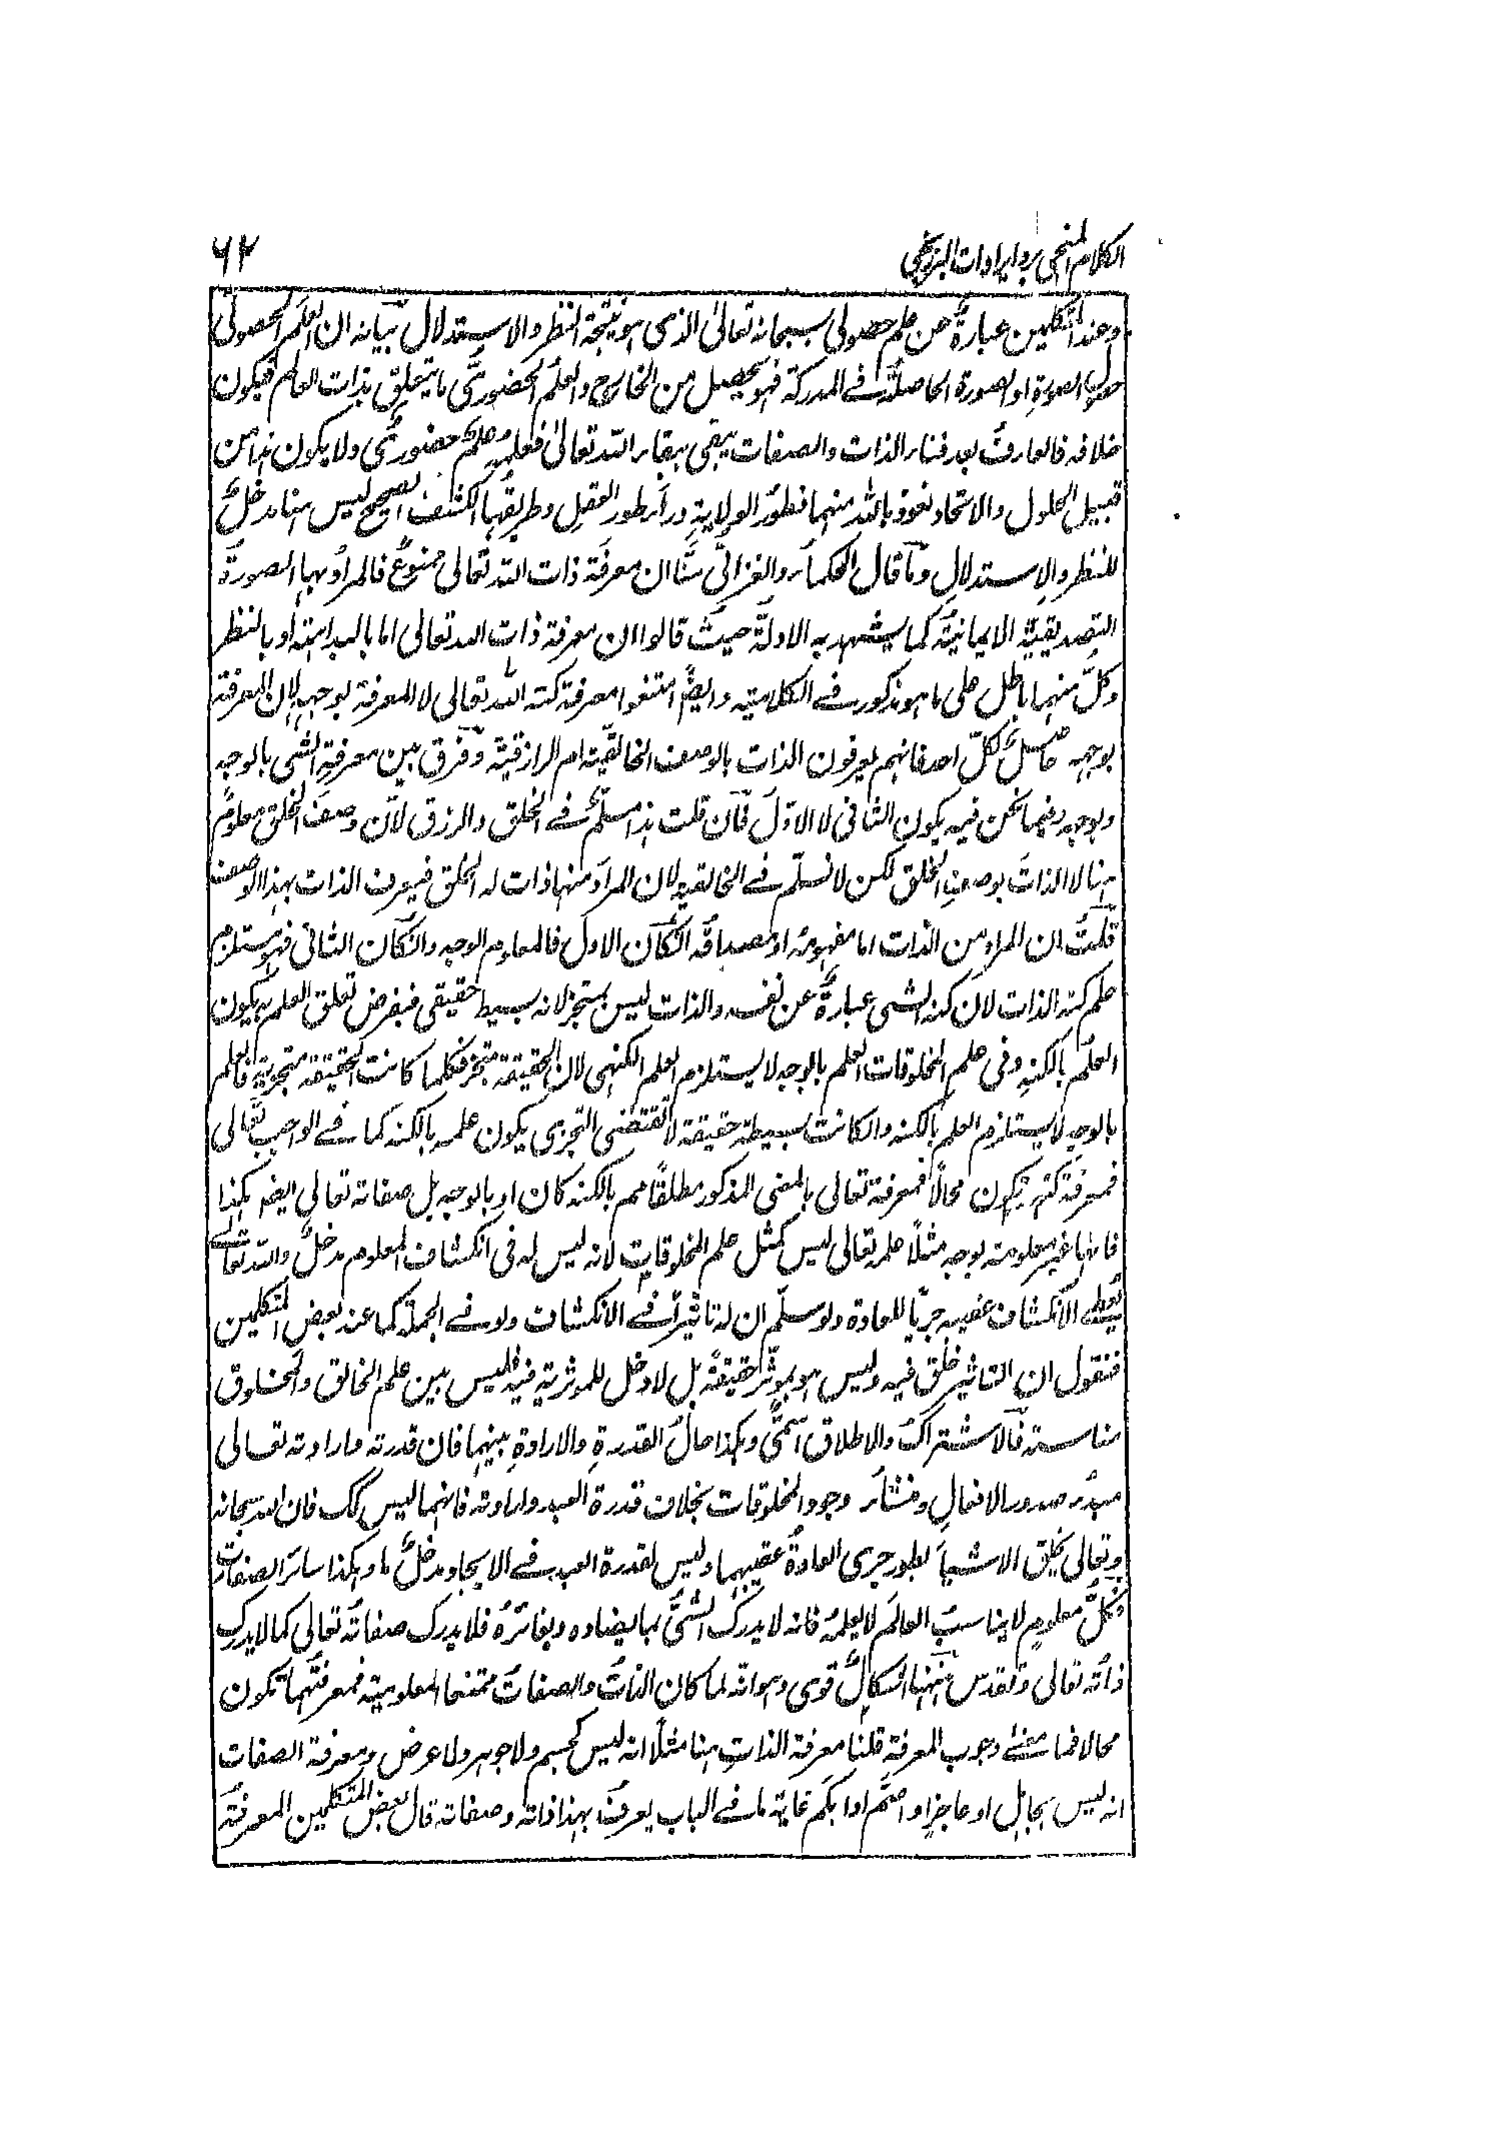 الكلام المنجي برد ايرادات البرزنجي
٦٢
وعند المتكلمين عبارةٌ عن علم حصولى سبحانه تعالىٰ الذى هو نتيجة النظر والاستدلال بيانه ان العلم الحصولى
حصول الصورة او الصورة الحاصلة فے المدركة فهو يحصل من الخارج والعلم الحضورىّ ما يتعلق بذات العالم فيكون
خلافه فالعارفُ بعد فناء الذات والصفات يبقى ببقاء الله تعالىٰ فعلمه علمٌ حضورىّ ولا يكون هذا من
قبيل الحلول والاتحاد نعوذ بالله منهما فطور الولاية وراء طور العقل وطريقها الكشف الصحيح ليس هنا مدخلٌ
للنظر والاستدلال وما قال الحكماء والغزالىّ منّا ان معرفة ذات الله تعالى ممنوعٌ فالمراد بها الصورة
التصديقية الايمانية كما يشهد به الادلة حيث قالوا ان معرفة ذات الله تعالى اما بالبداهة او بالنظر
وكلٌّ منهما باطل على ما هو مذكور فے الكلامية وايضًا امتنعوا معرفة كنه الله تعالى لا المعرفة بوجهه لان المعرفة
بوجهه حاصلٌ لكلّ احد فانهم يعرفون الذات بالوصف الخالقية ام الرازقية وفرق بين معرفة الشى بالوجه
وبوجهه وفيما نحن فيه يكون الثانى لا الاوّل فان قلت هذا مسلّمٌ فے الخلق والرزق لان وصف الخلق معلومٌ
هنا لا الذات بوصف الخلق لكن لا نسلّم فے الخالقية لان المراد منها ذات له الخلق فيعرف الذات بهذا الوصف
قلتُ ان المراد من الذات اما مفهومه او مصداقه انكان الاول فالمعلوم الوجه وانكان الثانى فهو مستلزم
علم كنه الذات لان كنه الشى عبارةٌ عن نفسه والذات ليس بمتجز لانه بسيط حقيقى فبفرض تعلق العلم به يكون
العلم بالكنه وفى علم المخلوقات العلم بالوجه لا يستلزم العلم الكنهى لان الحقيقة متجز فكلما كانت الحقيقة متجزية فالعلم
بالوجه لا يستلزم العلم بالكنه وانكانت بسيطة حقيقة لا تقتضى التجزى يكون علمه بالكنه كما فے الواجب تعالى
فمعرفة كنهه يكون محالًا فمعرفة تعالى بالمعنى المذكور مطلقًا مم بالكنه كان او بالوجه بل صفاته تعالى ايضا هكذا
فانها غير معلومة بوجه مثلًا علمه تعالى ليس كمثل علم المخلوقات لانه ليس له فى انكشاف المعلوم مدخلٌ والله تعالے
يعطے الانكشاف عقيبه جريًا للعادة ولو سلّم ان له تاثيرًا فے الانكشاف ولو فے الجملة كما عند بعض المتكلمين
فنقول ان التاثير خلق فيه وليس هو بمؤثر حقيقةً بل لا دخل للموثرية فيه فليس بين علم الخالق والمخلوق
مناسبة فالاشتراكُ والاطلاق اسمىٌّ وهكذا حالُ القدرةِ والارادةِ بينهما فان قدرته وارادته تعالى
مبدء صدور الافعال ومنشأء وجود المخلوقات بخلاف قدرة العبد وارادته فانهما ليس كك فان الله سبحانه
وتعالى يخلق الاشياء بطور جرى العادة عقيبهما وليس لقدرة العبد فے الايجاد مدخلٌ ما وهكذا سائر الصفات
وكلُّ معلومٍ لا يناسبُ العالَم لا يعلمه فانه لا يدركُ الشئَ بما يضاده ويغائره فلا يدرك صفاته تعالى كما لا يدرك
ذاته تعالى وتقدس فههنا اشكالٌ قوى وهو انه لما كان الذاتُ والصفاتُ ممتنعا المعلومية فمعرفتهما تكون
محالا فما معنے وجوب المعرفة قلنا معرفة الذاتِ هنا مثلًا انه ليس كجسم ولا جوهر ولا عرض ومعرفة الصفات
انه ليس بجاهل او عاجز او اصم او ابكم غاية ما فے الباب يعرف بهذا ذاته وصفاته قال بعض المتكلمين المعرفة